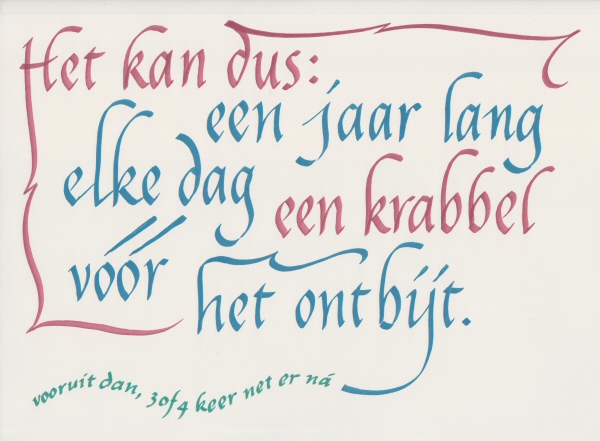 Het kan dus:
een jaar lang
elke dag een krabbel
vóór het ontbijt.
vooruit dan, 3 of 4 keer net er ná